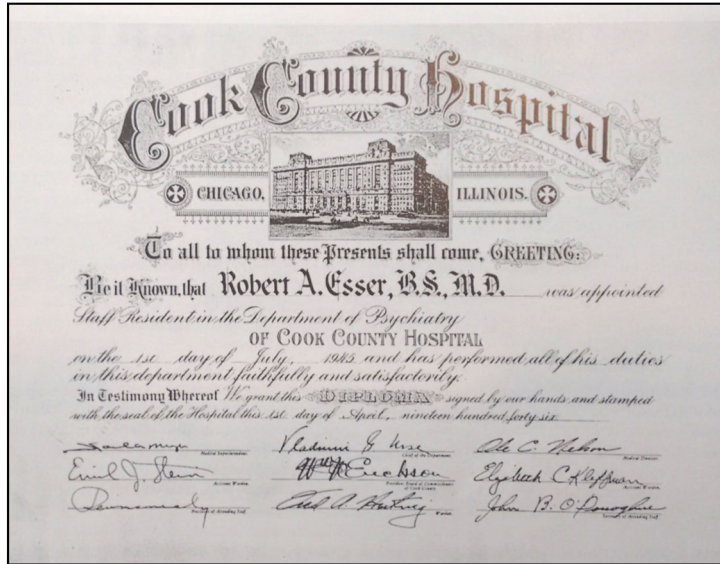 Cook County Hospital
CHICAGO, ILLINOIS.
To all to whom these Presents shall come, GREETING:
Be it Known, that Robert A. Esser, B.S., M.D. was appointed
Staff Resident in the Department of Psychiatry
OF COOK COUNTY HOSPITAL
on the 1st day of July, 1945 and has performed all of his duties
in this department faithfully and satisfactorily.
In Testimony Whereof We grant this DIPLOMA signed by our hands and stamped
with the seal of the Hospital this 1st day of April, nineteen hundred forty six
Vladimir G Urse Ole C. Nelson
Medical Superintendent. Chief of the Department. Medical Director.
Emil J. Erickson Elizabeth C
Assistant Warden. President Board of Commissioners Assistant Warden.
of Cook County
A. John B. O'Donoghue
President of Attending Staff. Warden. Secretary of Attending Staff.